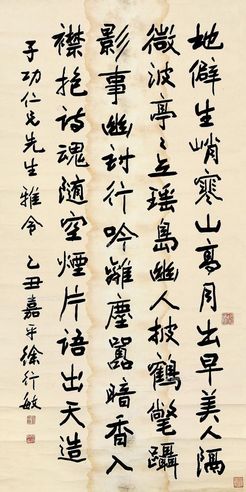 地僻生峭寒山高月出早美人隔
微波亭〻立瑶島幽人披鶴氅躡
影事幽討行吟離塵囂暗香入
襟抱詩魂随空煙片語出天造
子功仁兄先生雅令 乙丑嘉平徐行敏